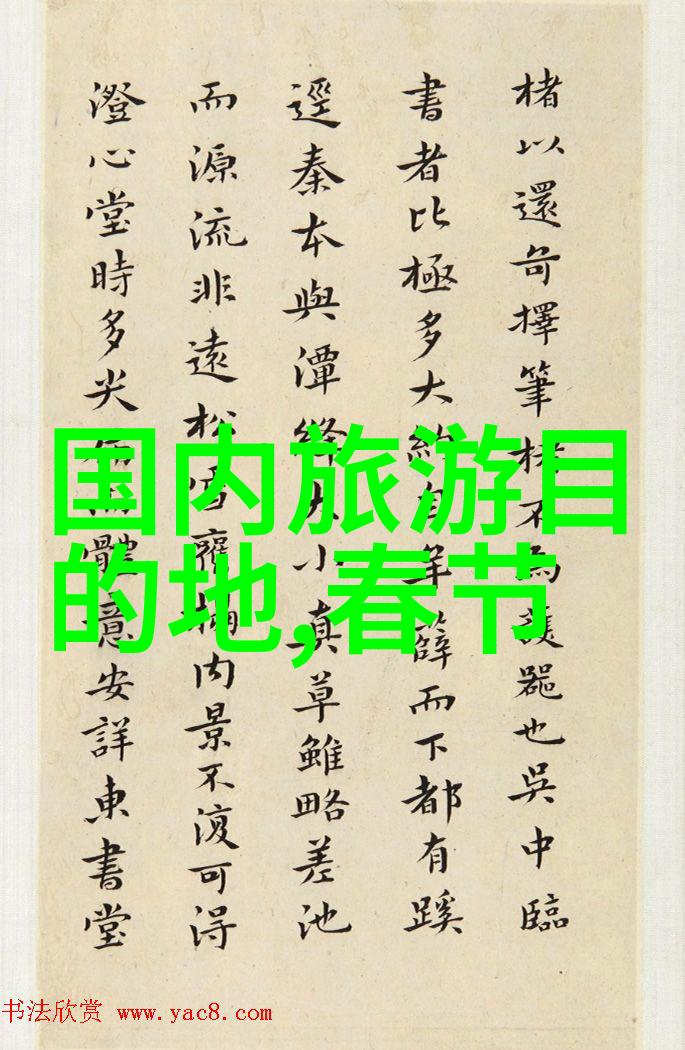 楮以還奇擇筆不為器也吳中臨
書者比極多大約自羊薛而下都有蹊
逕秦本與潭絳大小真草雖略差池
而源流非遠松雪內景不復可得
澄心堂時多尖體意安詳東書堂
国内旅游目
的地,春节
书法欣赏 www.yac8.com